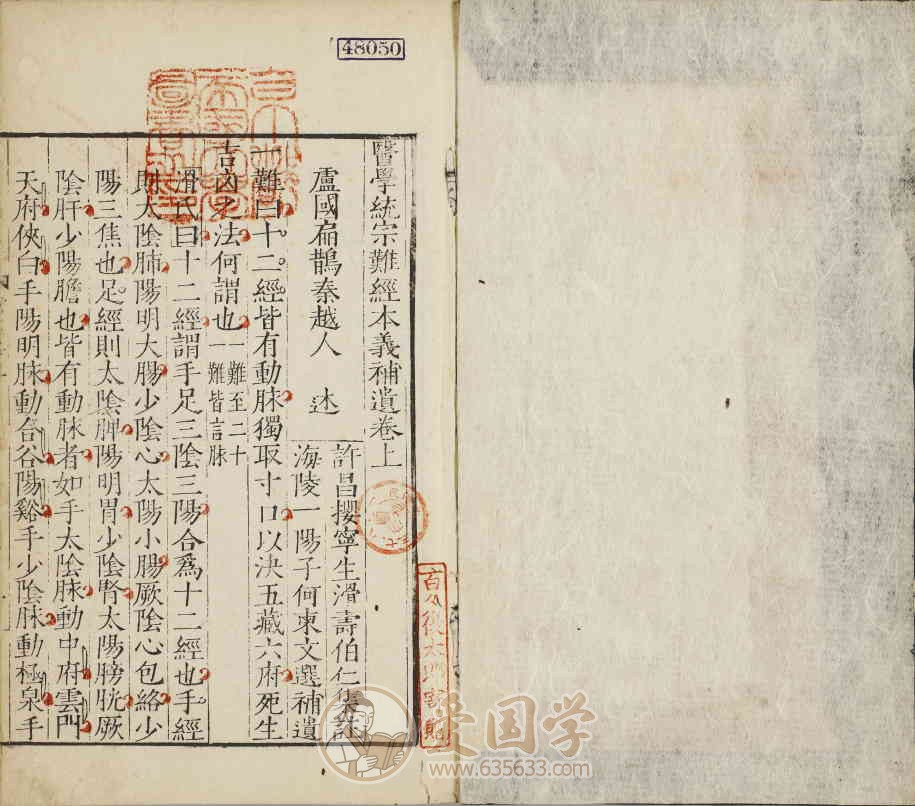 48050
醫學統宗難經本義補遺卷上
盧國扁鵲秦越人 述
許昌攖寧生滑壽伯仁集註
海陵一陽子何柬文選補遺
一難曰十二經皆有動脉獨取寸口以決五藏六府死生
吉凶之法何謂也
一難至二十
一難皆言脉
滑氏曰十二經謂手足三陰三陽合爲十二經也手經
則太陰肺陽明大腸少陰心太陽小腸厥陰心包絡少
陽三焦也足經則太陰脾陽明胃少陰腎太陽膀胱厥
陰肝少陽膽也皆有動脉者如手太陰脉動中府雲門
天府俠白手陽明脉動合谷陽谿手少陰脉動極泉手
爱国学
www.635633.com